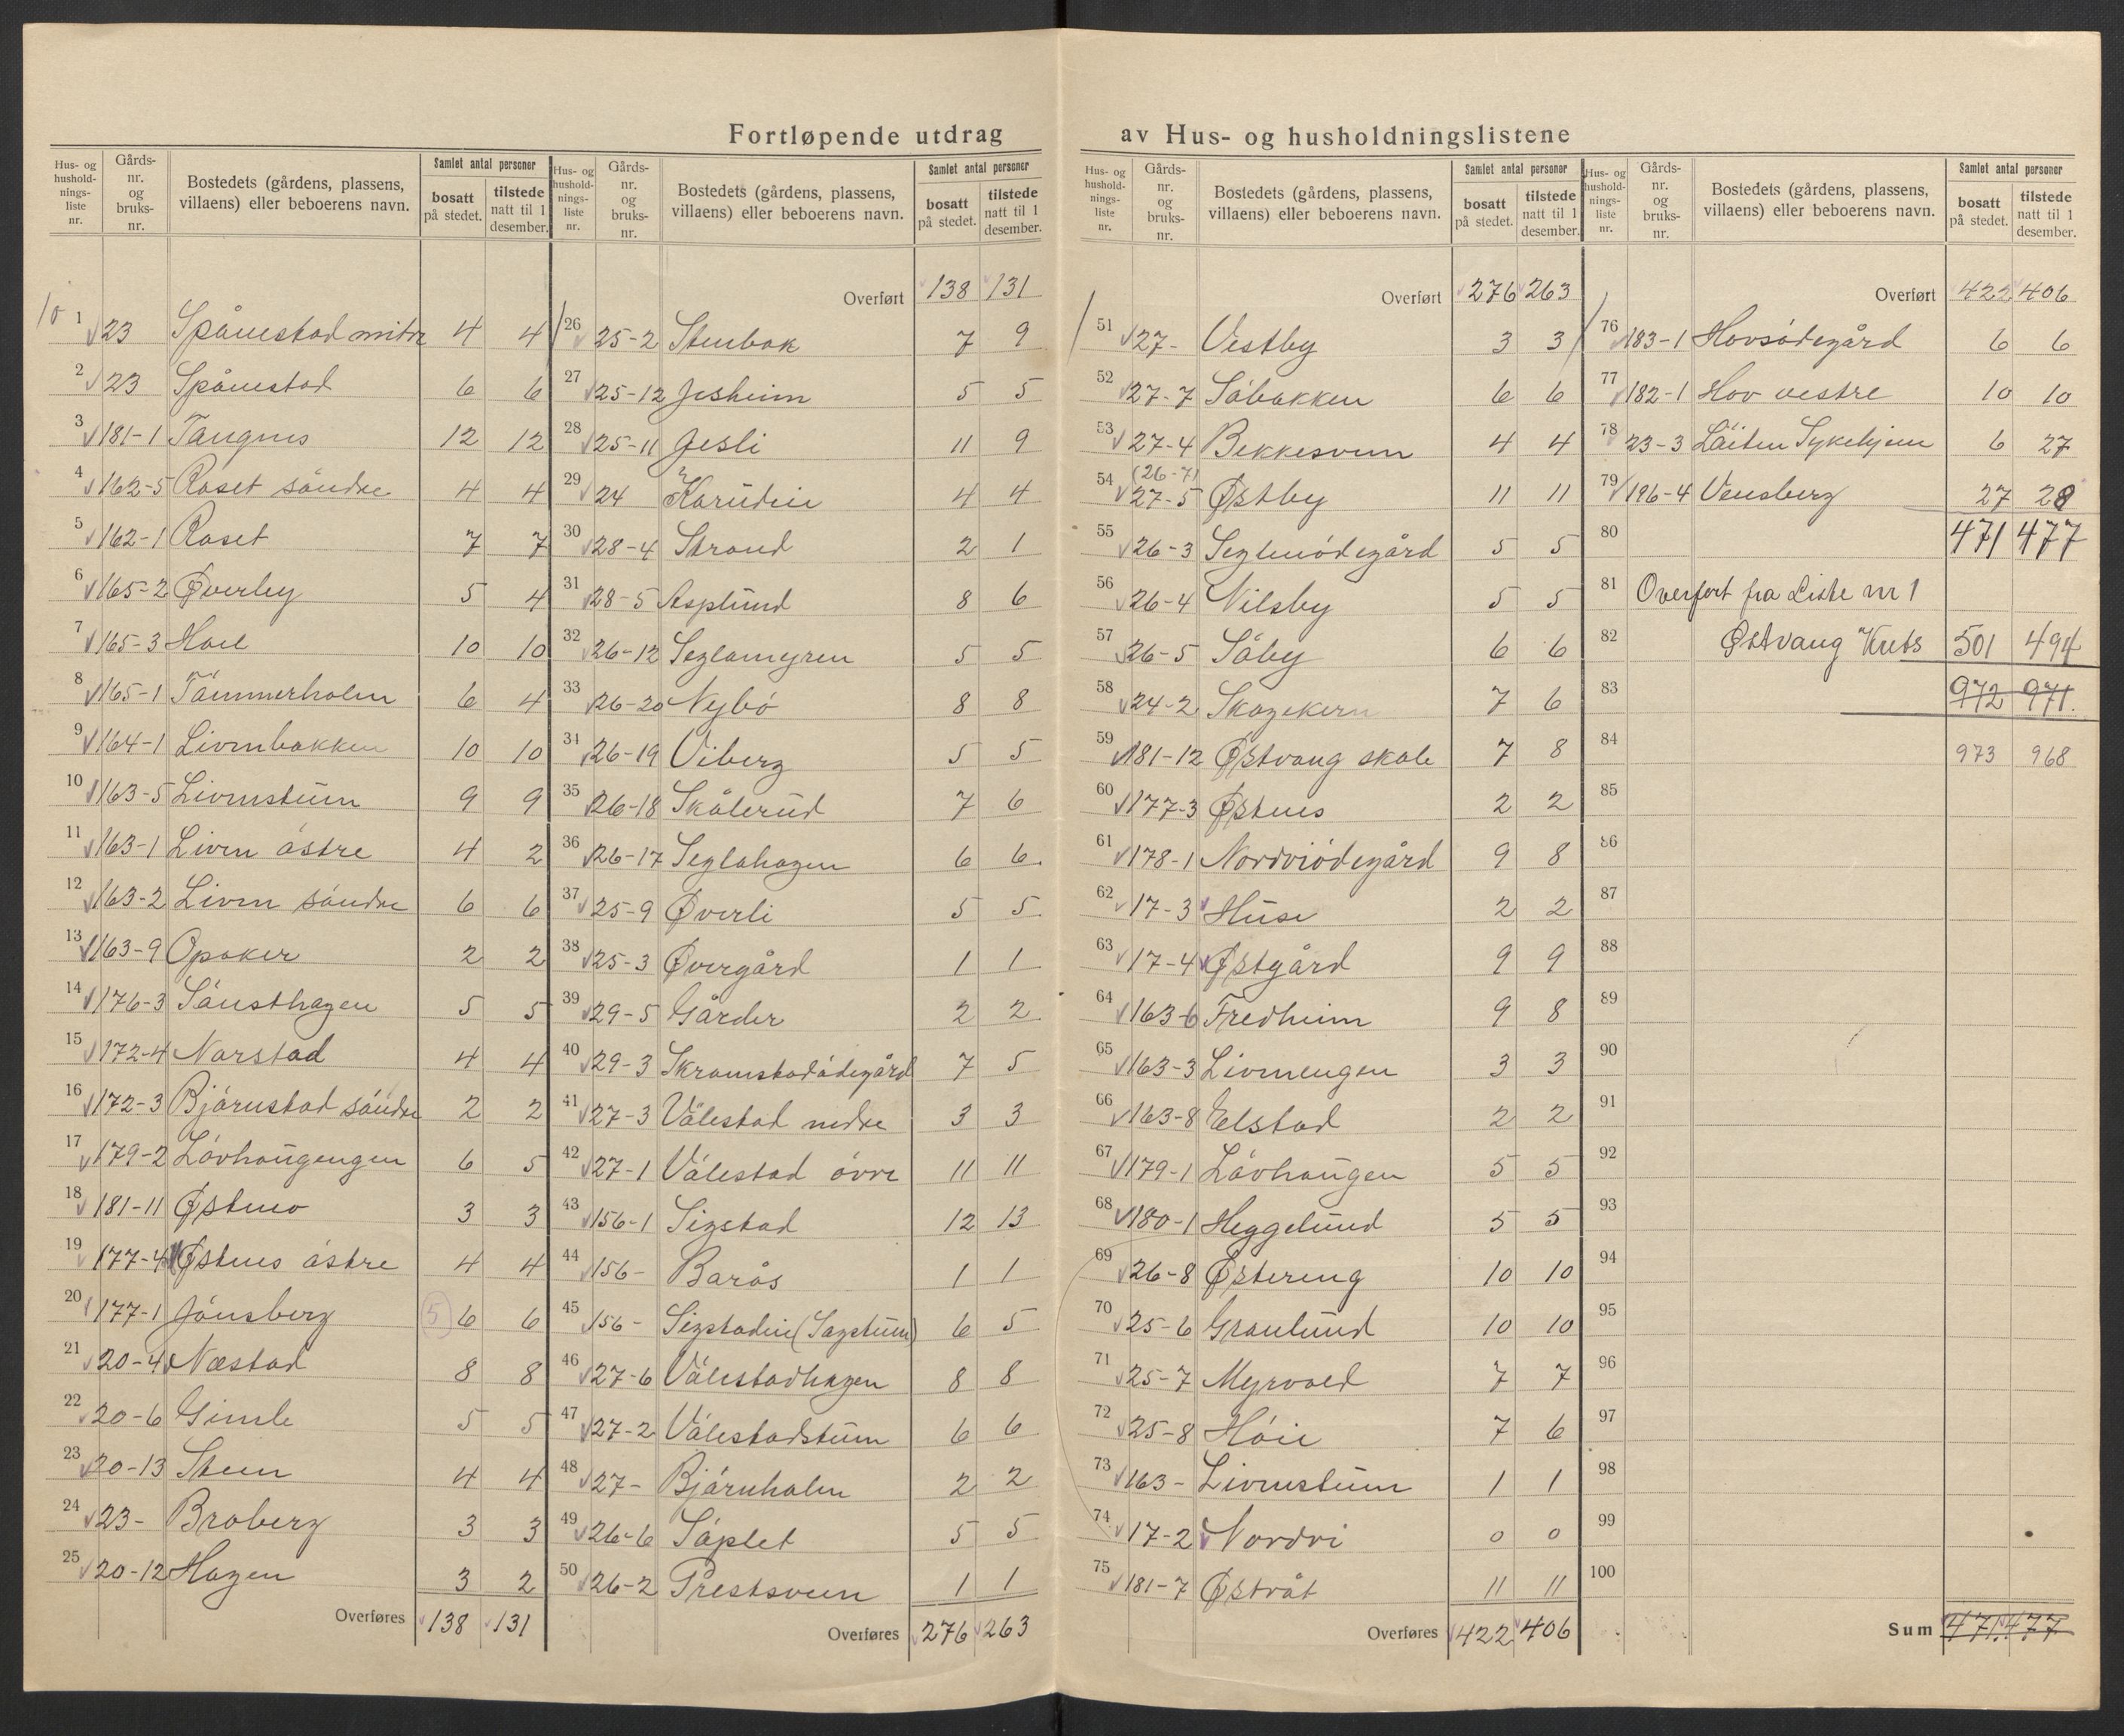 Fortløpende utdrag av Hus- og husholdningslistene
Hus- og hushold-nings-liste nr. Gårds-nr. og bruks-nr. Bostedets (gårdens, plassens, villaens) eller beboerens navn. Samlet antal personer bosatt på stedet. tilstede natt til 1 desember.
10
1 23 Spånestad mitre 4 4
2 23 Spånestad 6 6
3 181-1 Tangnes 12 12
4 162-5 Roset söndre 4 4
5 162-1 Roset 7 7
6 165-2 Øverby 5 4
7 165-3 Hoel 10 10
8 165-1 Tömmerholen 6 4
9 164-1 Livmbakken 10 10
10 163-5 Livmstuen 9 9
11 163-1 Livm östre 4 2
12 163-2 Livm söndre 6 6
13 163-9 Opaker 2 2
14 176-3 Sönsthagen 5 5
15 172-4 Narstad 4 4
16 172-3 Bjørnstad söndre 2 2
17 179-2 Lövhaugengen 6 5
18 181-11 Østmo 3 3
19 177-4 Østnes östre 4 4
20 177-1 Jönsberg (5) 6 6
21 20-4 Næstad 8 8
22 20-6 Gimle 5 5
23 20-13 Steen 4 4
24 23- Broberg 3 3
25 20-12 Hagen 3 2
Overføres 138 131
Hus- og hushold-nings-liste nr. Gårds-nr. og bruks-nr. Bostedets (gårdens, plassens, villaens) eller beboerens navn. Samlet antal personer bosatt på stedet. tilstede natt til 1 desember.
Overført 138 131
26 25-2 Stenbak 7 9
27 25-12 Jesheim 5 5
28 25-11 Jesli 11 9
29 24 Karudie 4 4
30 28-4 Strand 2 1
31 28-5 Asplund 8 6
32 26-12 Seglamyren 5 5
33 26-20 Nybö 8 8
34 26-19 Viberg 5 5
35 26-18 Skålerud 7 6
36 26-17 Seglahagen 6 6
37 25-9 Øverli 5 5
38 25-3 Øvergård 1 1
39 29-5 Gårder 2 2
40 29-3 Skramstadödegård 7 5
41 27-3 Vålestad nedre 3 3
42 27-1 Vålestad övre 11 11
43 156-1 Sigstad 12 13
44 156- Barås 1 1
45 156- Sigstadie (Sagstuen) 6 5
46 27-6 Vålestadhagen 8 8
47 27-2 Vålestadstuen 6 6
48 27- Bjørnholen 2 2
49 26-6 Såplet 5 5
50 26-2 Prestsveen 1 1
Overføres 276 263
Hus- og hushold-nings-liste nr. Gårds-nr. og bruks-nr. Bostedets (gårdens, plassens, villaens) eller beboerens navn. Samlet antal personer bosatt på stedet. tilstede natt til 1 desember.
Overført 276 263
51 27- Vestby 3 3
52 27-7 Såbakken 6 6
53 27-4 Bekkesveen 4 4
(26-7)
54 27-5 Østby 11 11
55 26-3 Seglenödegård 5 5
56 26-4 Nilsby 5 5
57 26-5 Såby 6 6
58 24-2 Skogekern 7 6
59 181-12 Østvang skole 7 8
60 177-3 Østnes 2 2
61 178-1 Nordviödegård 9 8
62 17-3 Huse 2 2
63 17-4 Østgård 9 9
64 163-6 Fredheim 9 8
65 163-3 Livmengen 3 3
66 163-8 Elstad 2 2
67 179-1 Lövhaugen 5 5
68 180-1 Heggelund 5 5
69 26-8 Østereng 10 10
70 25-6 Granlund 10 10
71 25-7 Myrvold 7 7
72 25-8 Höie 7 6
73 163- Livmstuen 1 1
74 17-2 Nordvi 0 0
75 181-7 Østvåt 11 11
Overføres 422 406
Hus- og hushold-nings-liste nr. Gårds-nr. og bruks-nr. Bostedets (gårdens, plassens, villaens) eller beboerens navn. Samlet antal personer bosatt på stedet. tilstede natt til 1 desember.
Overført 422 406
76 183-1 Hovsödegård 6 6
77 182-1 Hov vestre 10 10
78 23-3 Löiten Sykehjem 6 27
79 196-4 Vensberg 27 28
80 471 477
81 Overfört fra Liste nr 1
82 Østvang Krets 501 494
83 972 971.
84 973 968
85
86
87
88
89
90
91
92
93
94
95
96
97
98
99
100
Sum 471. 477